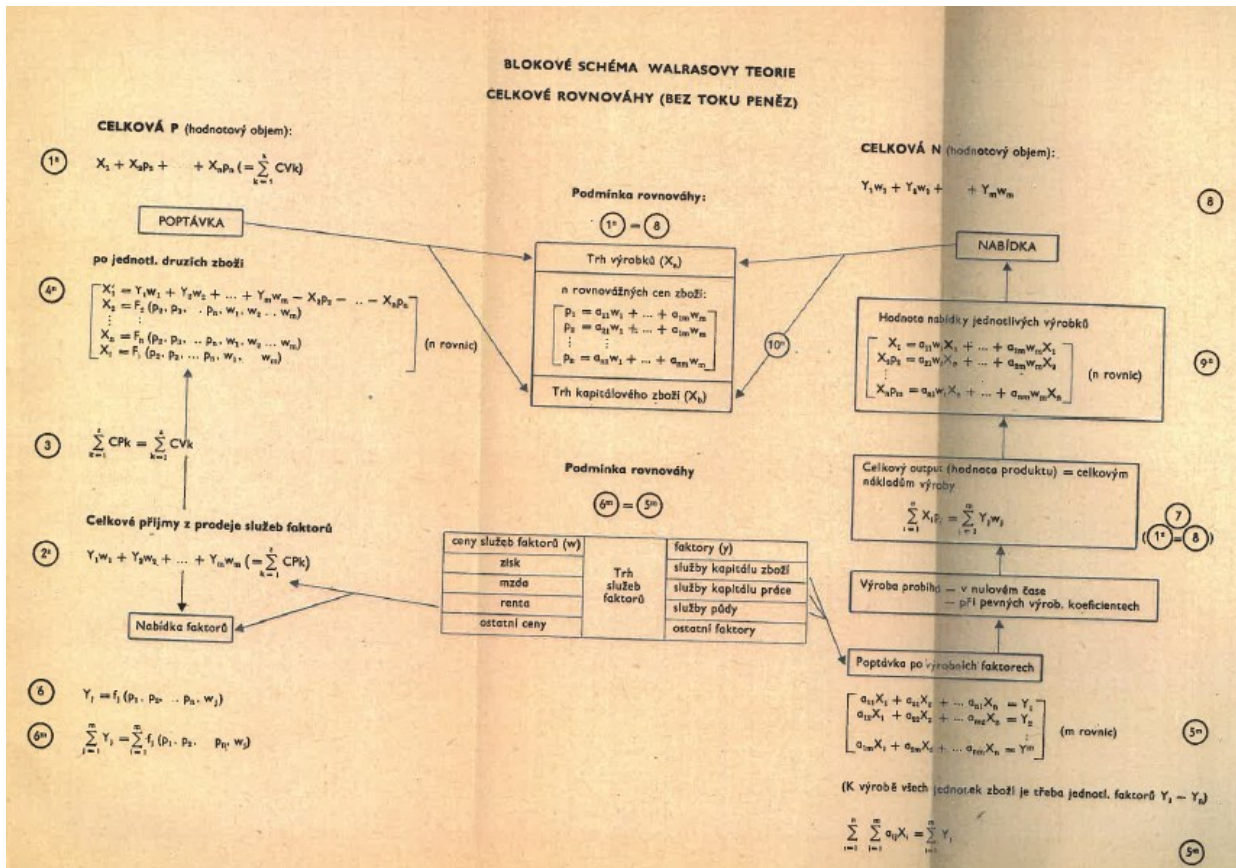 BLOKOVÉ SCHÉMA WALRASOVY TEORIE
CELKOVÉ ROVNOVÁHY (BEZ TOKU PENĚZ)
CELKOVÁ P (hodnotový objem):
1ⁿ
X₁ + X₂p₂ + + Xₙpₙ (= ∑ CVk)
POPTÁVKA
po jednotl. druzích zboží
4ⁿ
X₁ = Y₁w₁ + Y₂w₂ + ... + Yₘwₘ − X₂p₂ − .. − Xₙpₙ
X₂ = F₂ (p₂, p₃, .. pₙ, w₁, w₂ .. wₘ)
Xₙ = Fₙ (p₂, p₃, .. pₙ, w₁, w₂ ... wₘ)
(n rovnic)
3
∑ CPk = ∑ CVk
Celkové příjmy z prodeje služeb faktorů
2ⁿ
Y₁w₁ + Y₂w₂ + ... + Yₘwₘ (= ∑ CPk)
Nabídka faktorů
6
Yⱼ = fⱼ (p₁, p₂, .. pₙ, wⱼ)
6ᵐ
∑ Yⱼ = ∑ fⱼ (p₁, p₂, pₙ, wⱼ)
Podmínka rovnováhy:
1ⁿ = 8
Trh výrobků (Xₐ)
n rovnovážných cen zboží:
p₁ = a₁₁w₁ + ... + a₁ₘwₘ
p₂ = a₂₁w₁ + ... + a₁ₘwₘ
pₙ = aₙₙw₁ + ... + aₙₘwₘ
Trh kapitálového zboží (X_b)
10ⁿ
Podmínka rovnováhy
6ᵐ = 5ᵐ
ceny služeb faktorů (w)
zisk
mzda
renta
ostatní ceny
Trh
služeb
faktorů
faktory (y)
služby kapitálu zboží
služby kapitálu práce
služby půdy
ostatní faktory
CELKOVÁ N (hodnotový objem):
Y₁w₁ + Y₂w₂ + + Yₘwₘ
8
NABÍDKA
Hodnota nabídky jednotlivých výrobků
X₁ = a₁₁w₁X₁ + ... + a₁ₘwₘX₁
X₂p₂ = a₂₁w₁X₂ + ... + a₂ₘwₘX₂
Xₙpₘ = aₙ₁w₁X₁ + ... + aₙₘwₘXₙ
(n rovnic)
9ⁿ
Celkový output (hodnota produktu) = celkovým
nákladům výroby
∑ Xᵢpᵢ = ∑ Yⱼwⱼ
7
(1ⁿ = 8)
Výroba probíhá — v nulovém čase
— při pevných výrob. koeficientech
Poptávka po výrobních faktorech
a₁₁X₁ + a₂₁X₂ + ... aₙ₁Xₙ = Y₁
a₁₂X₁ + a₂₂X₂ + ... aₙ₂Xₙ = Y₂
a₁ₘX₁ + a₂ₘX₂ + ... aₙₘXₙ = Yᵐ
(m rovnic)
5ᵐ
(K výrobě všech jednotek zboží je třeba jednotl. faktorů Y₁ − Yₙ)
∑ ∑ aᵢⱼXᵢ = ∑ Yⱼ
5ᵐ